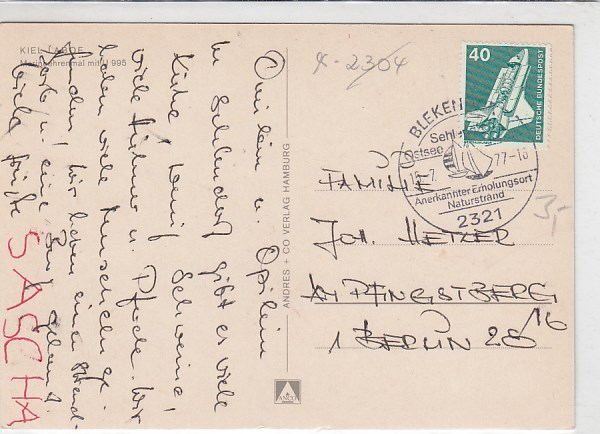 KIEL LABOE
Marineehrenmal mit U 995
Omilein u. Opilein
In Sehlendorf gibt es viele
Kühe, Schweine,
viele Hühner u. Pferde. Wir
haben viele Muscheln ge-
funden. Wir haben einen Strand-
korb u. eine Burg.
Viele Grüße
SASCHA
ANDRES + CO VERLAG HAMBURG
ANCO
4-2304
40
DEUTSCHE BUNDESPOST
BLEKEN
Sehl
Ostsee
15.-7. 77-18
Anerkannter Erholungsort
Naturstrand
2321
3,-
FAMILIE
JOH. METZER
AM PFINGSTBERG 16
1 BERLIN 28